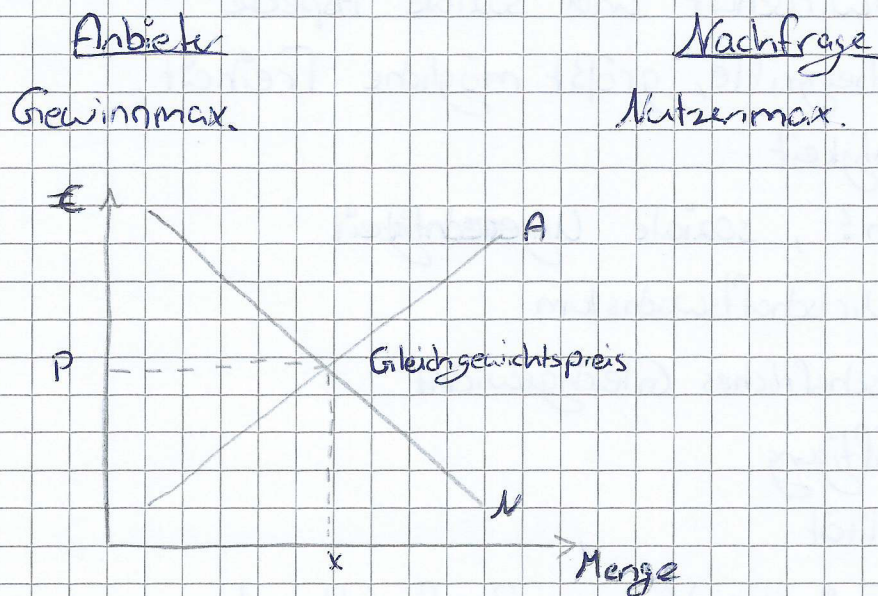 Anbieter
Nachfrage
Gewinnmax.
Nutzenmax.
€
A
P
Gleichgewichtspreis
N
x
Menge